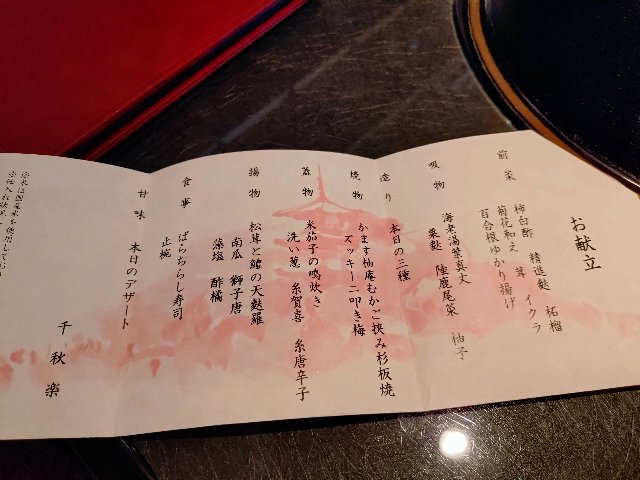 お献立
前菜
柿白酢 精進麩 柘榴
菊花和え 茸 イクラ
百合根ゆかり揚げ
吸物
海老湯葉真丈
粟麩 陸鹿尾菜 柚子
造り
本日の三種
焼物
かます柚庵むかご挟み杉板焼
ズッキーニ叩き梅
蓋物
米茄子の鴫炊き
洗い葱 糸賀喜 糸唐辛子
揚物
松茸と鱧の天麩羅
南瓜 獅子唐
藻塩 酢橘
食事
ばらちらし寿司
止椀
甘味
本日のデザート
千秋楽
お米は国産米を使用しており